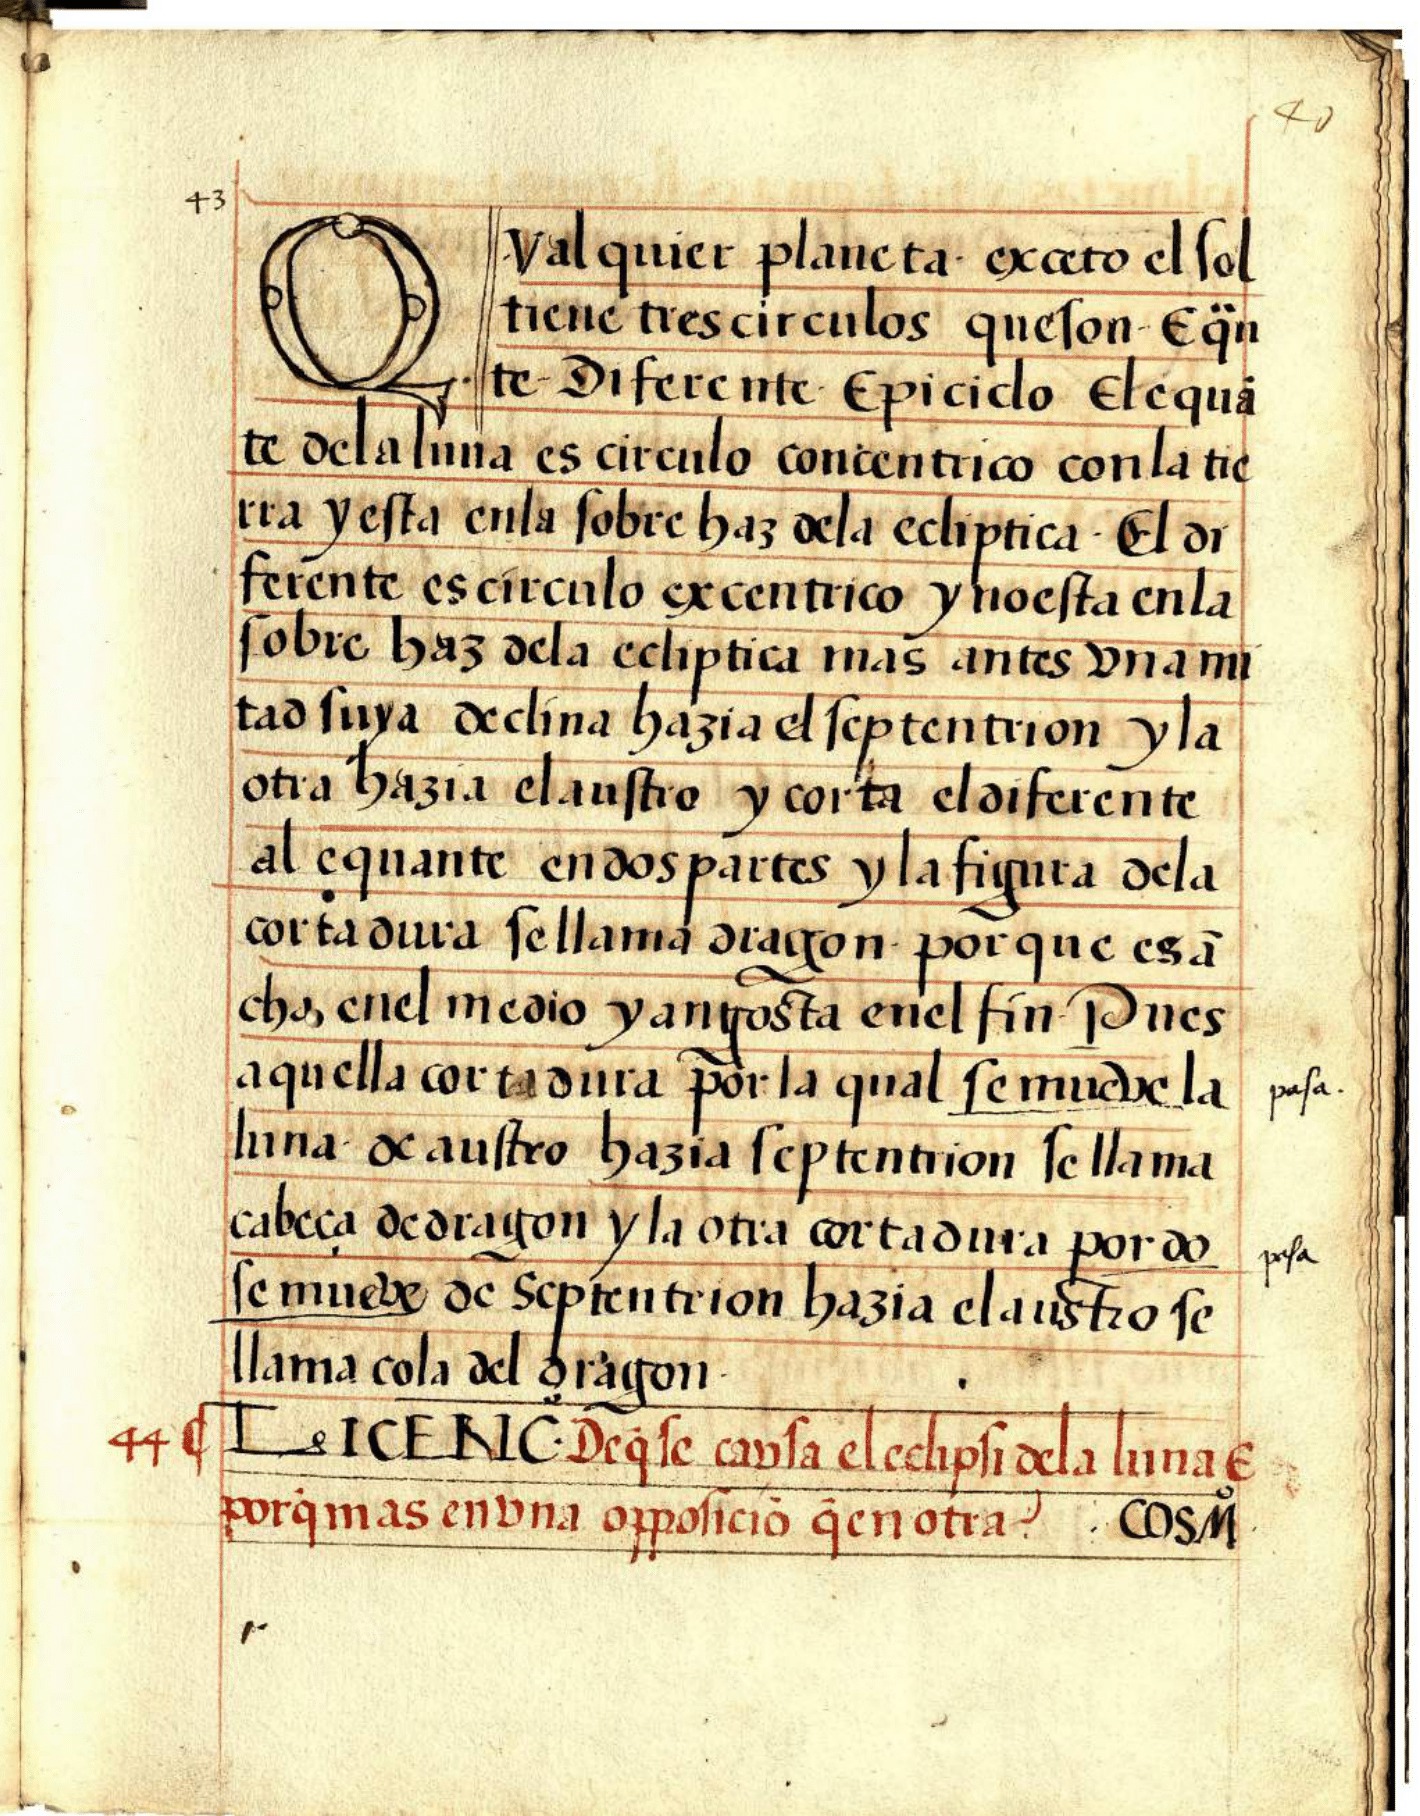 40
43
QValquier planeta · exceto el sol
tiene tres circulos que son · Eq̈n
te · Diferente · Epiciclo El equā
te de la luna es circulo concentrico con la tie
rra y esta enla sobre haz dela ecliptica · El di
ferente es circulo excentrico y no esta en la
sobre haz dela ecliptica mas antes vna mi
tad suya declina hazia el septentrion y la
otra hazia el austro y corta el diferente
al equante en dos partes y la figura dela
cortadura se llama dragon · porque es ā
cho, enel medio y angosta enel fin · Pues
aquella cortadura por la qual se mueve la pasa.
luna · de austro hazia septentrion se llama
cabeça de dragon y la otra cortadura por do pasa
se mueve de Septentrion hazia el austro se
llama cola del dragon ·
44 ¶ LoICENC̃· De q̃ se causa el eclipsi dela luna E
porq̃ mas en vna opposiciō q̃ en otra? · COSMº
r